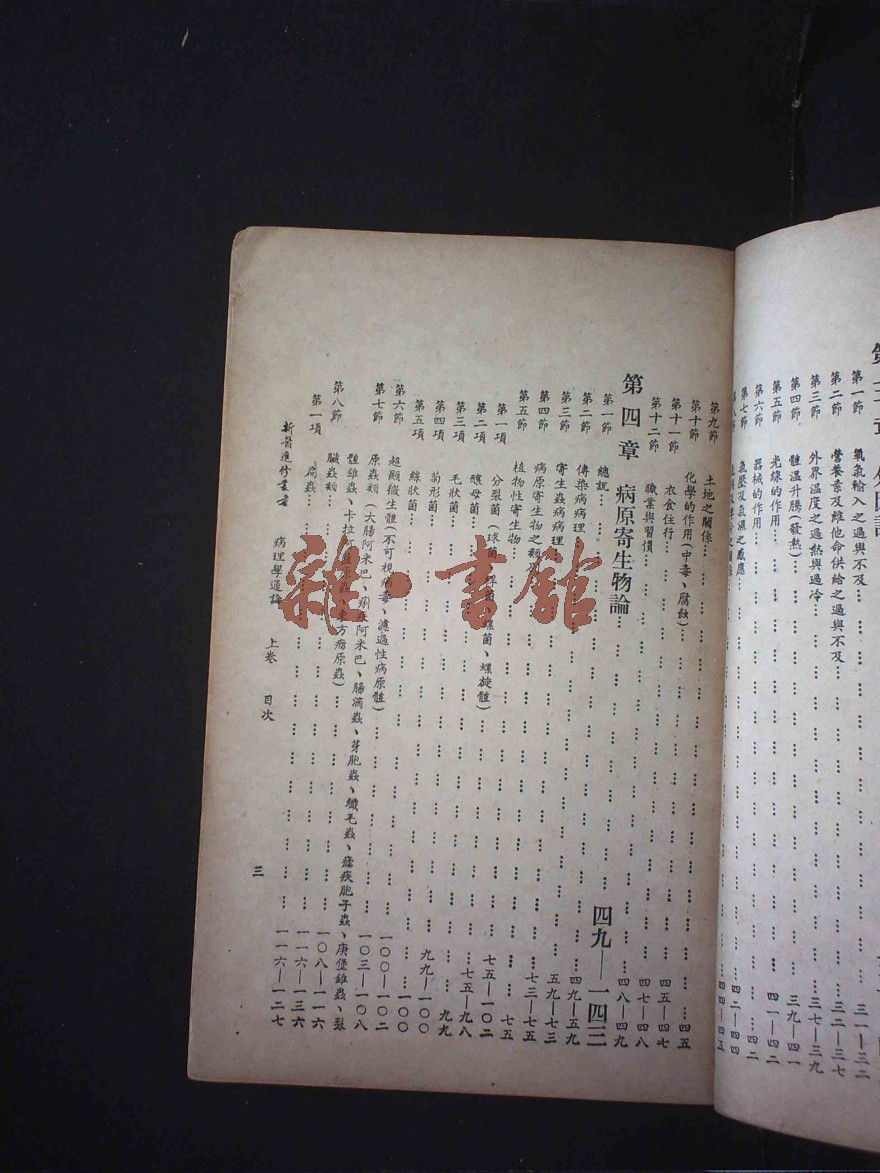 第一節 氧氣輸入之過與不及… 三一—三二
第二節 營養素及維他命供給之過與不及… 三二—三七
第三節 外界溫度之過熱與過冷… 三七—三九
第四節 體溫升騰(發熱)… 三九—四一
第五節 光線的作用… 四一—四二
第六節 器械的作用… 四二
第七節 氣壓及氣濕之感應… 四二—四四
四四—四五
第九節 土地之關係… 四五
第十節 化學的作用(中毒、腐蝕)… 四五—四七
第十一節 衣食住行… 四七—四八
第十二節 職業與習慣… 四八—四九
第四章 病原寄生物論… 四九—一四三
第一節 總説… 四九—五九
第二節 傳染病病理… 五九—七三
第三節 寄生蟲病病理… 七三—七五
第四節 病原寄生物之類別… 七五
第五節 植物性寄生物… 七五—一〇二
第一項 分裂菌(球菌、桿菌、螺菌、螺旋體)… 七五—九八
第二項 釀母菌… 九九
第三項 毛狀菌… 九九—一〇〇
第四項 菊形菌… 一〇〇
第五項 絲狀菌… 一〇〇—一〇二
第六節 超顯微生體(不可視病毒、濾過性病原體)… 一〇三—一〇八
第七節 原蟲類(大腸阿米巴、痢疾阿米巴、腸滴蟲、芽胞蟲、纖毛蟲、瘧疾胞子蟲、庚堡錐蟲、裂
體錐蟲、卡拉 東方瘤原蟲)… 一〇八—一一六
第八節 臟蟲類… 一一六—一三六
第一項 扁蟲… 一一六—一二七
新醫進修叢書 病理學通論 上卷 目次 三
雜·書館